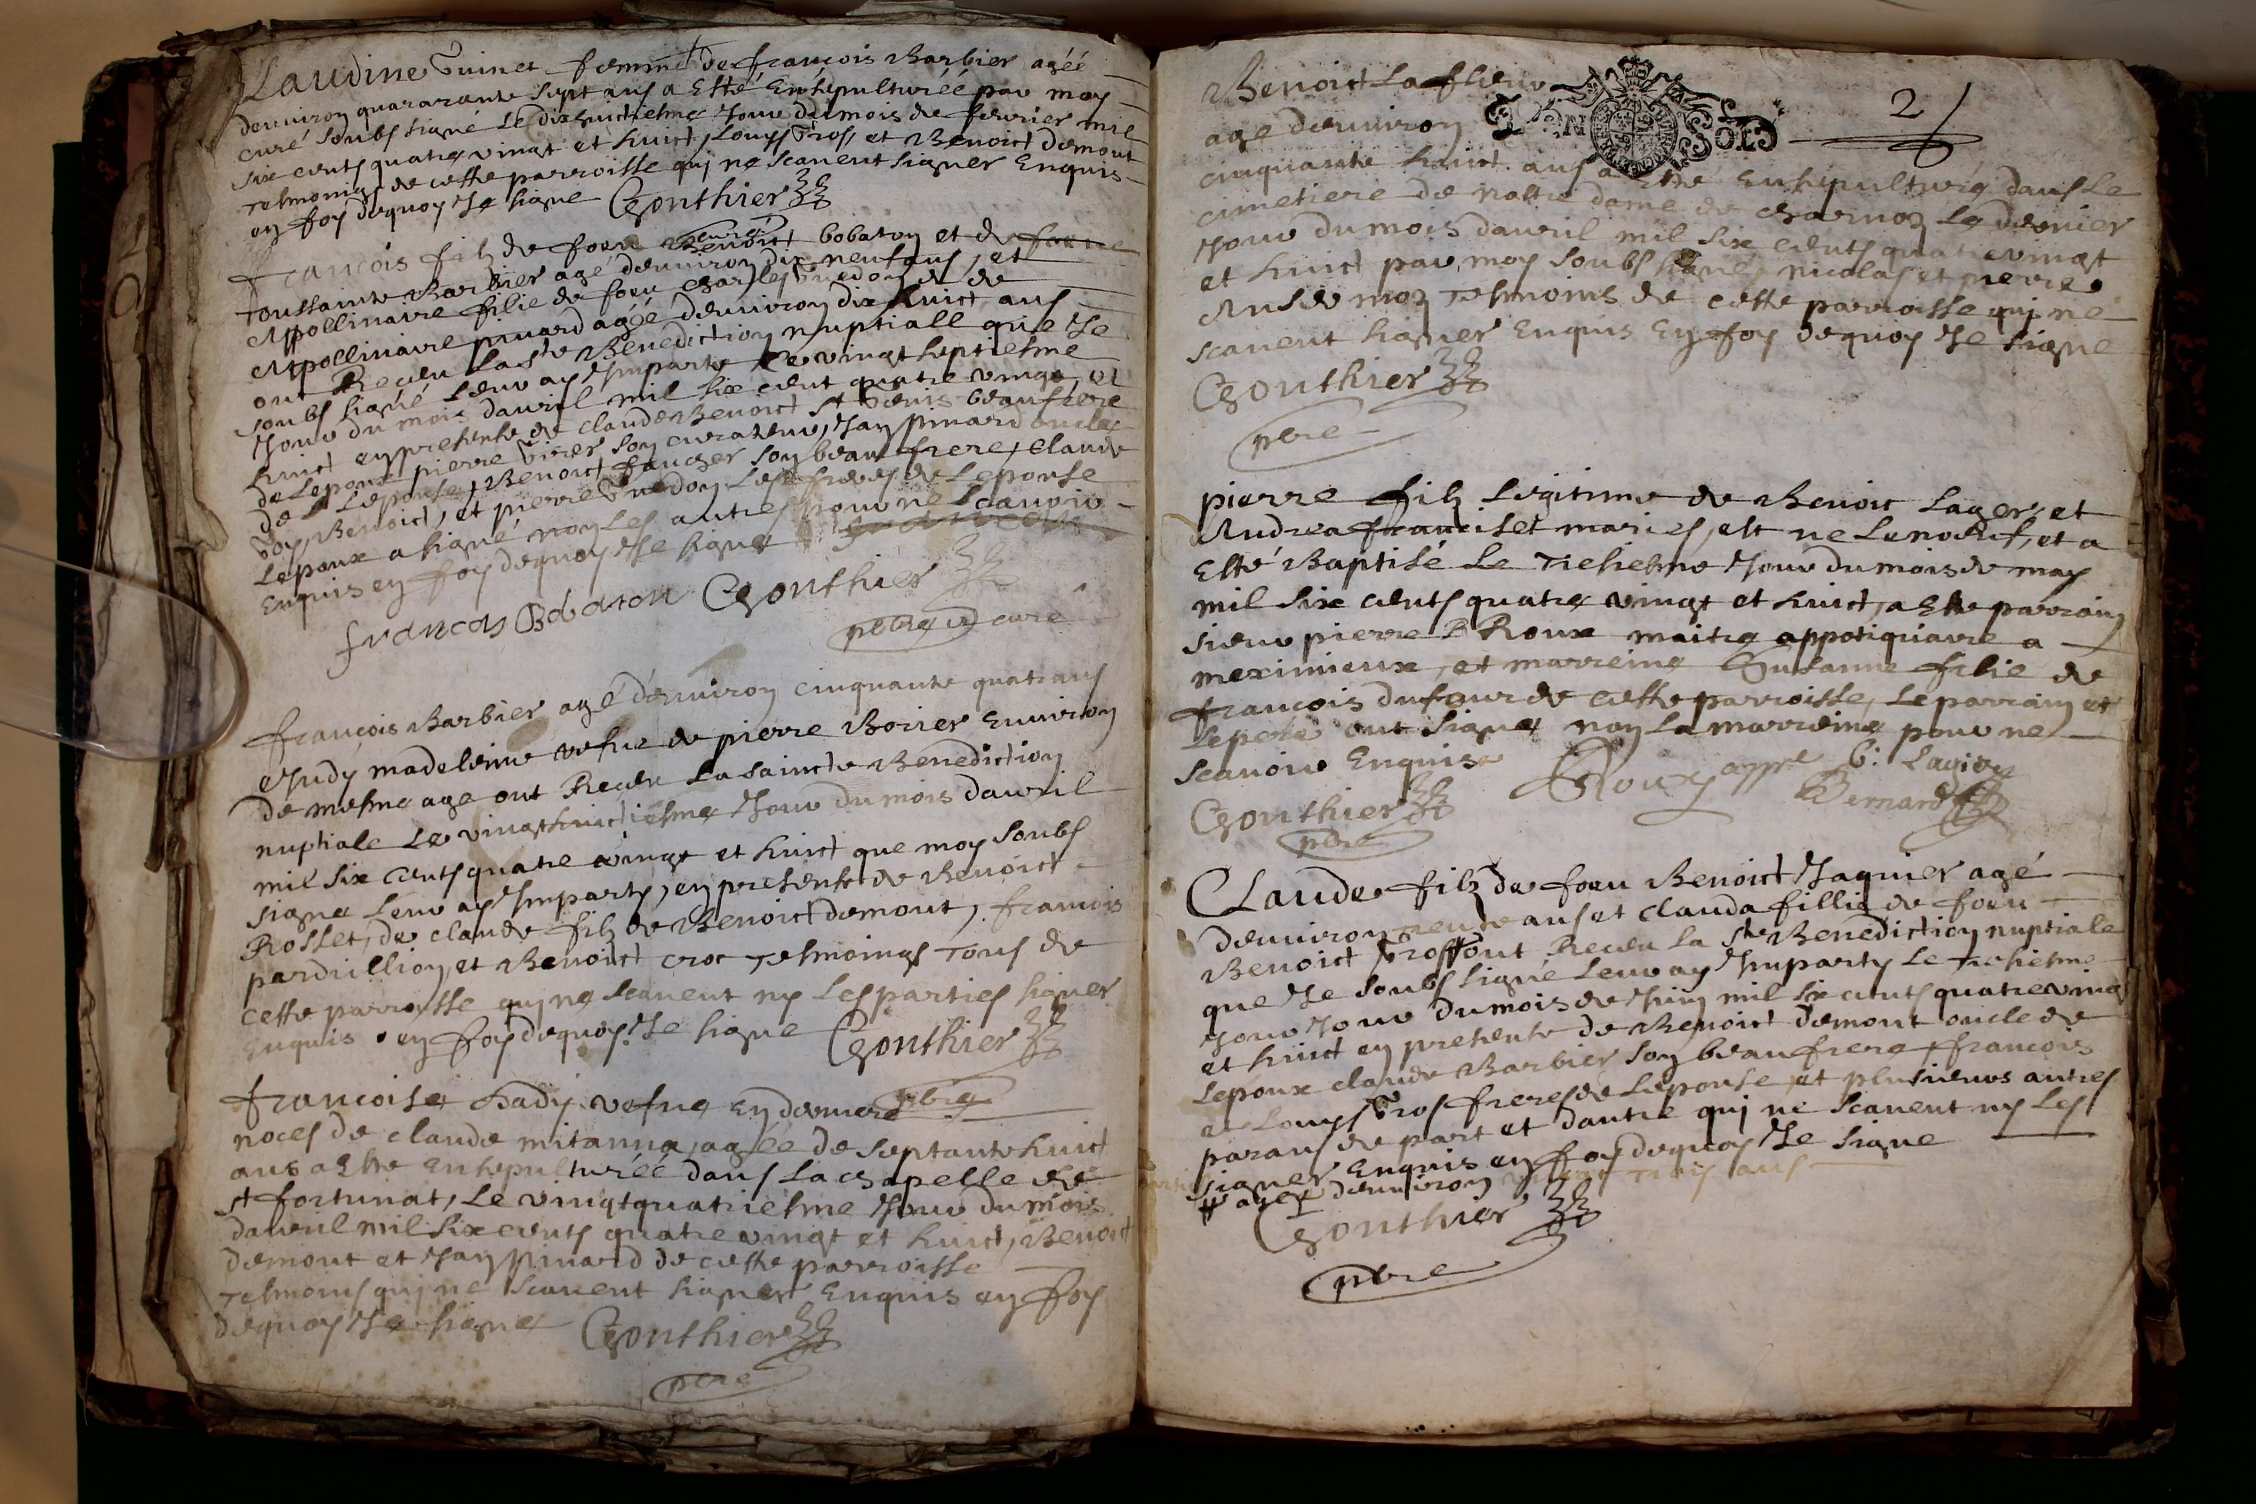 Laudine Vuinet femme de françois Barbier agéé
denviron quararante sept ans a Esté Ensépulturéé par moy
curé soubs signé Le dixhuictiesme Jour du mois de fevrier mil
six cents quatre vingt et huict, Louys Tros et Benoict demont
tesmoings de cette parroisse qui ne scavent signer Enquis
en foy dequoy Je signe Gonthier curé
francois filz de feeu Benoict bobaton et de
toussainte Barbier agé denviron dix neuf ans, et
Appollinaire fille de feeu Charles Guedon et de
Appollinaire pinard agéé denviron dix huict ans
ont Receu La ste Benediction nuptiall que Je
soubs signé Leur ay Imparty Le vingt septiesme
Jour du mois davril mil six cent quatre vingt et
huict en presente de claude Benoict st Denis beaufrere
de Lepoux pierre Virer son curateur, Jan pinard oncle
de Lepouse, Benoict faucher son beau frere, claude
Benoict, et pierre Guedon Les freres de Lepouse
Lepoux a signé non Les autres pour ne scavoir
Enquis en foy dequoy Je signe
francois Bobaton Gonthier
pbre et curé
françois Barbier agé denviron cinquante quatr ans
Judy madeleine vefue de pierre Borier Environ
de mesme age ont Receu La saincte Benediction
nuptiale Le vingthuictiesme Jour du mois davril
mil six cents quatre vingt et huict que moy soubs
signe Leur ay Imparty, en presente de Benoict
Rosset, de claude filz de Benoict demont, francois
pardullion et Benoict croc tesmoings Tous de
cette parroisse qui ne scavent ny Les parties signer
Enquis en foy dequoy Je signe Gonthier
pbre
francoise Dady vefue En derniere
noces de claude mitanna, agéé de septante huict
ans a Este Ensepulturéé dans La chapelle de
st fortunat, Le vingtquatriesme Jour du mois
davril mil six cents quatre vingt et huict, Benoict
demont et Jan pinard de cette parroisse
tesmoins qui ne scavent signer Enquis en foy
dequoy Je signe Gonthier
pbre
Benoict Lafleur
2
GEN SOLD
age denviron
cinquante huict ans a Esté Ensepulturé dans Le
cimetiere de nottre dame de charnoz Le dernier
Jour du mois davril mil six cents quatre vingt
et huict par moy soubs signé, nicolas et pierre
tesmoins de cette parroisse qui ne
scavent signer Enquis En foy dequoy Je signe
Gonthier
pbre
pierre filz Legitime de Benoit Lager, et
Andrea franciset maries, est ne Le noeuf, et a
Esté Baptisé Le tresiesme Jour du mois de may
mil six cents quatre vingt et huict, a Esté parrain
sieur pierre Roux maitre appotiquaire a
meximieux, et marreine Susanne fille de
francois dufour de cette parroisse, Le parrain et
Le pere ont signé non La marreine pour ne
scavoir Enquise
Roux appre
Bernard
Gonthier
pbre
Claude filz de feeu Benoict Jaquier agé
denviron trente ans et clauda fillie de feeu
Benoict Tros # ont Receu La ste Benediction nuptiale
que Je soubs signé Leur ay Imparty Le tresiesme
Jour Jour du mois de Juin mil six cents quatre vingt
et huict en presente de Benoict demont oncle de
Lepoux claude Barbier son beaufrere, francois
et Louys Tros freres de Lepouse, et plusieurs autres
parans de part et dautre qui ne scavent ny Les
signer Enquis en foy dequoy Je signe
# agéé denviron vingt trois ans
Gonthier
pbre